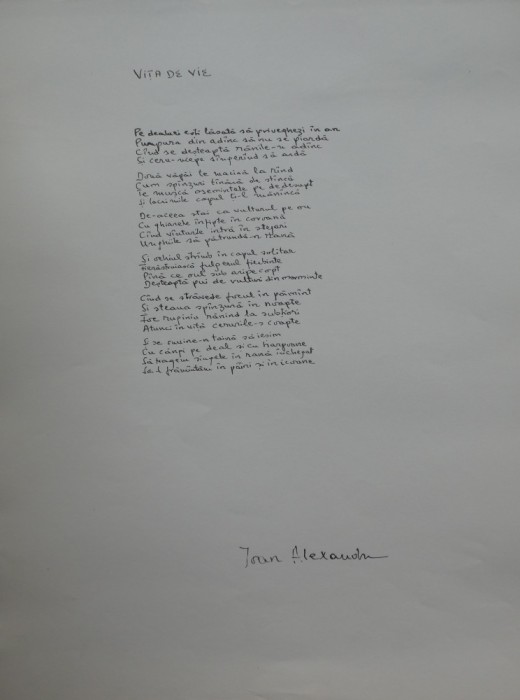 VIȚA DE VIE
Pe dealuri ești lăsată să priveghezi în an
Purpura din adînc să nu se piardă
Cînd se deșteaptă rănile-n adînc
Și ceru-ncepe sîngerînd să ardă
Două văpăi te macină la rînd
Cum spînzuri tînără de stîncă
Te mușcă osemintele pe dedesupt
Și lacrimile capul ți-l mănîncă
De-aceea stai ca vulturul pe ou
Cu ghiarele înfipte în coroană
Cînd vînturile intră în stejari
Unghiile să pătrundă-n
Și ochiul strîmb în capul solitar
fulgerul fierbinte
Pînă ce oul sub aripe copt
Deșteaptă pui de vulturi din morminte
Cînd se străvede focul în pămînt
Și steaua spînzură în noapte
rugina rănind la subțiori
Atunci în viță cerurile-s coapte
Și se cuvine-n taină să ieșim
Cu cănți pe deal și cu harpoane
Să tragem sîngele în rană închegat
Să-l frămîntăm în pîini și în icoane
Ioan Alexandru